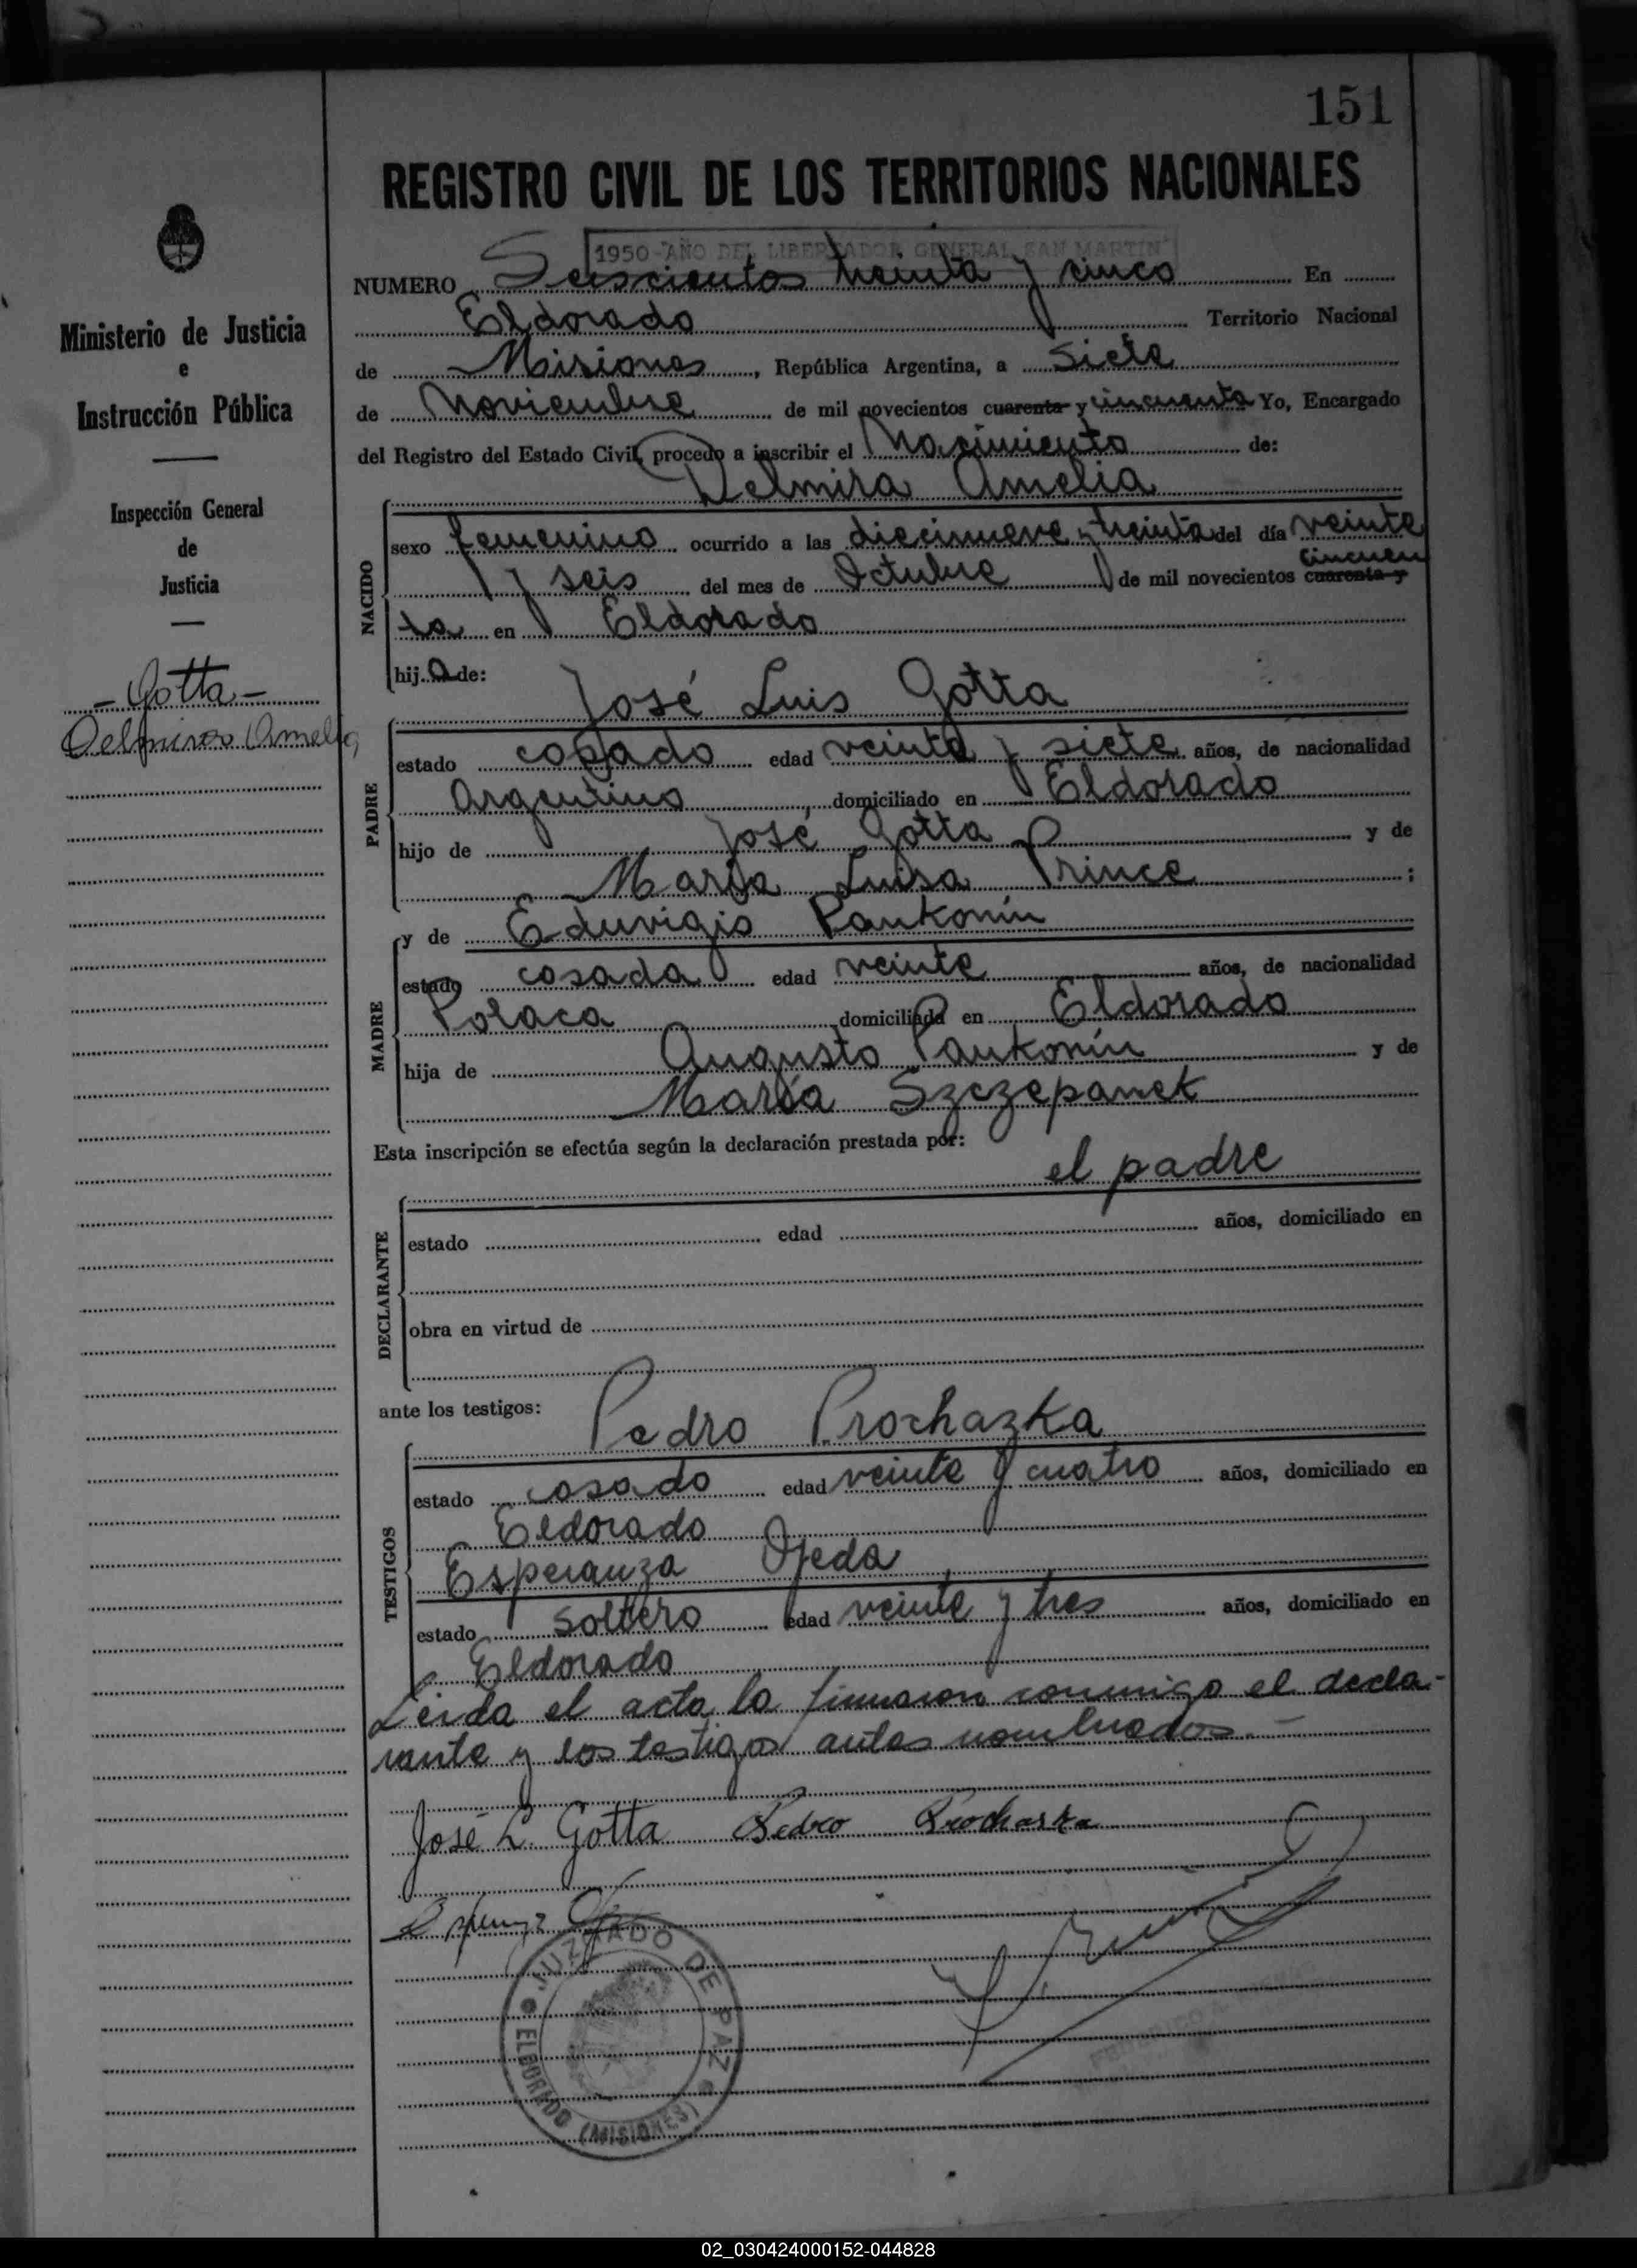 151
REGISTRO CIVIL DE LOS TERRITORIOS NACIONALES
1950-AÑO DEL LIBERTADOR GENERAL SAN MARTIN
NUMERO Seiscientos treinta y cinco En
Eldorado Territorio Nacional
de Misiones, República Argentina, a Siete
de Noviembre de mil novecientos cuarenta y cincuenta Yo, Encargado
del Registro del Estado Civil, procedo a inscribir el Nacimiento de:
Delmira Amelia
NACIDO
sexo femenino ocurrido a las diecinueve y treinta del día veinte
y seis del mes de Octubre de mil novecientos cuarenta y cincuen
ta en Eldorado
hija de:
José Luis Gotta
PADRE
estado casado edad veinte y siete años, de nacionalidad
Argentino, domiciliado en Eldorado
hijo de José Gotta y de
María Luisa Prince ;
y de Eduvigis Pankonín
MADRE
estado casada edad veinte años, de nacionalidad
Polaca domiciliada en Eldorado
hija de Augusto Pankonín y de
María Szczepanek
Esta inscripción se efectúa según la declaración prestada por:
el padre
DECLARANTE
estado edad años, domiciliado en
obra en virtud de
ante los testigos:
Pedro Prochazka
TESTIGOS
estado casado edad veinte y cuatro años, domiciliado en
Eldorado
Esperanza Ojeda
estado Soltero edad veinte y tres años, domiciliado en
Eldorado
Leida el acta la firmaron conmigo el decla-
rante y los testigos antes nombrados.-
José L. Gotta Pedro Prochazka
JUZGADO DE PAZ
ELDORADO (MISIONES)
Ministerio de Justicia
e
Instrucción Pública
Inspección General
de
Justicia
- Gotta -
Delmira Amelia
02_030424000152-044828